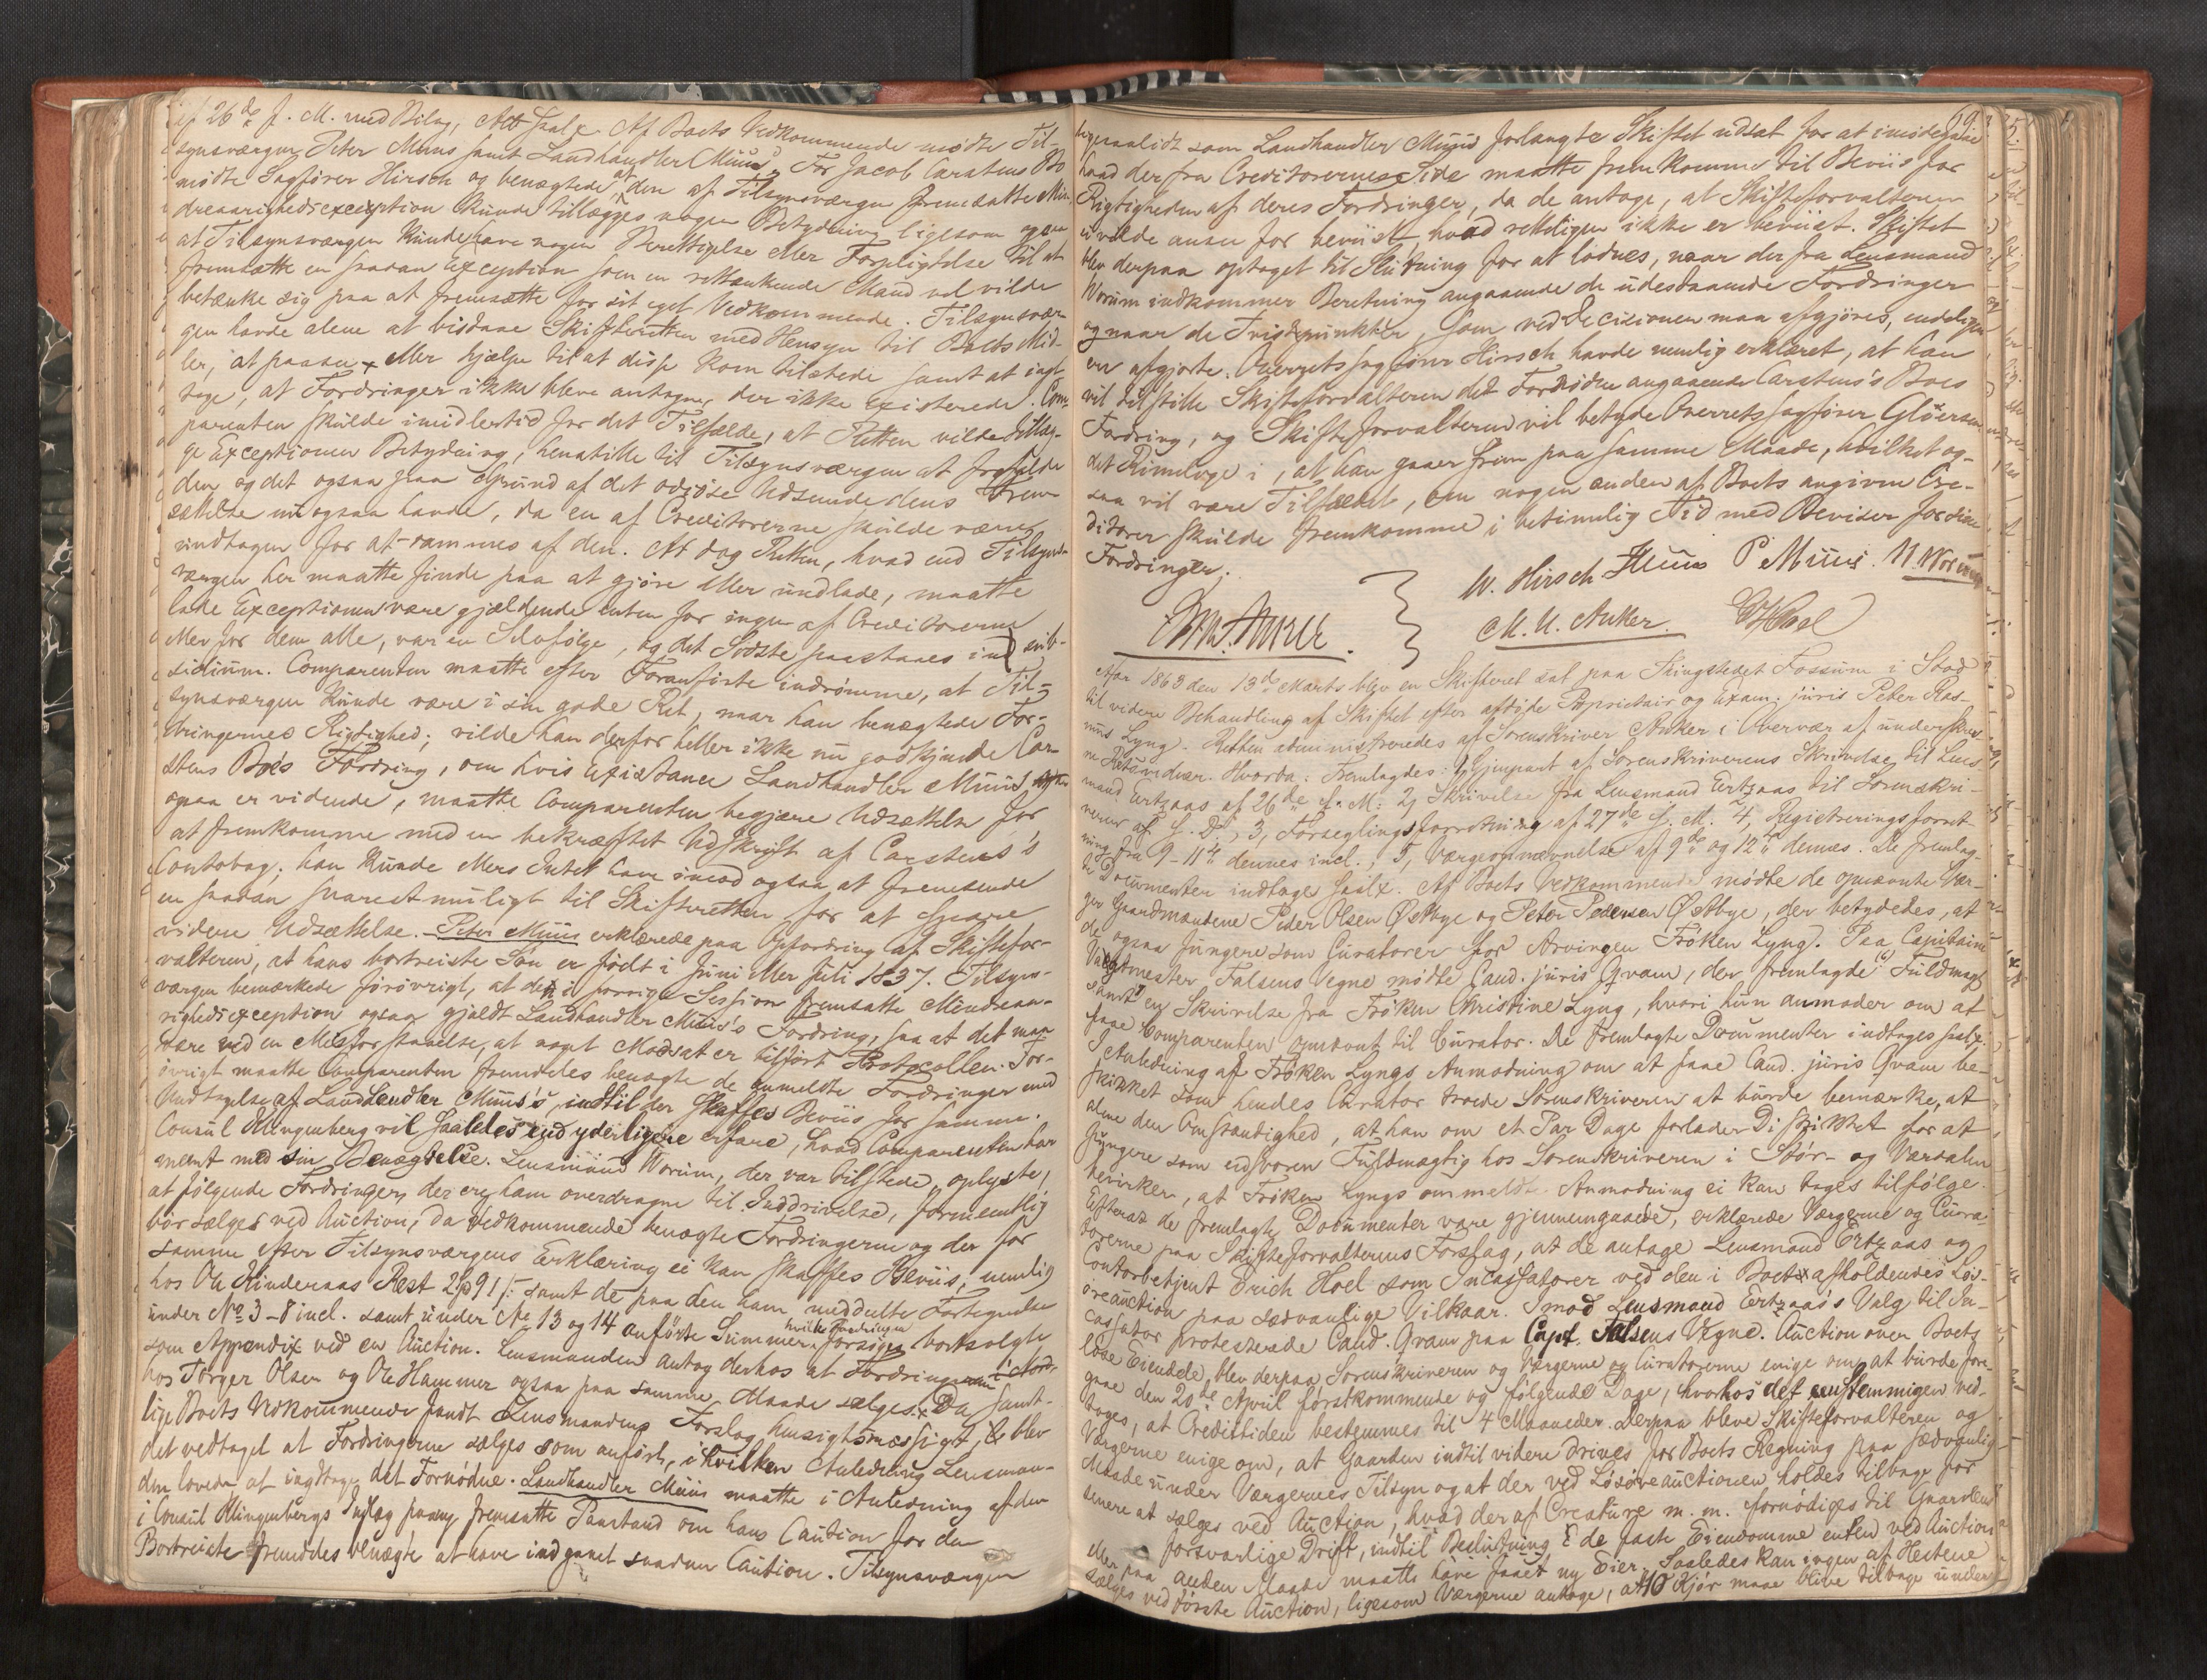 26de f. M. med Bilag, Alt Saal. Af Boets Vedkommende mødte Til-
synsværgen Peter Muus samt Landhandler Muus. For Jacob Carstens Bo
mødte Sagfører Hirsch og benægtede at den af Tilsynsværgen fremsatte Min-
dreaarighedsexception kunde tillægges nogen Betydning ligesom
at Tilsynsværgen kunde have nogen Berettigelse eller Forpligtelse til at
fremsætte en saadan Exception som en rettænkende Mand vel vilde
betænke sig paa at fremsætte for sit eget Vedkommende. Tilsynsvær-
gen havde alene at bistaae Skifteretten med Hensyn til Boets Mid-
ler, at paasee eller hjælpe til at disse kom tilstede samt at iagt-
tage, at Fordringer ikke bleve antagne, der ikke existerede. Com-
parenten skulde imidlertid for det Tilfælde, at Retten vilde tillæg-
ge Exceptionen Betydning, henstille til Tilsynsværgen at frafalde
den og det ogsaa paa Grund af det odiøse Udseende dens Frem-
sættelse nu ogsaa havde, da en af Creditorerne skulde være
undtagen for at rammes af den. At dog Retten, hvad end Tilsyns-
værgen her maatte finde paa at gjøre eller undlade, maatte
lade Exceptionen være gjældende enten for ingen af Creditorerne
eller for dem alle, var en Selvfølge, og det Sidste paastaaes in sub-
sidium. Comparenten maatte efter Foranførte indrømme, at Til-
synsværgen kunde være i sin gode Ret, naar han benægtede For-
dringernes Rigtighed; vilde han derfor heller ikke nu godkjende Car-
stens Bo's Fordring, om hvis Existance Landhandler Muus
ogsaa er vidende, maatte Comparenten begjære Udsættelse for
at fremkomme med en bekræftet Udskrift af Carstens's
Contobog; han kunde ellers Intet have imod ogsaa at fremsende
en saadan snarest muligt til Skifteretten for at spare
videre Udsættelse. Peter Muus erklærede paa Opfordring af Skiftefor-
valteren, at hans bortreiste Søn er født i Juni eller Juli 1837. Tilsyns-
værgen bemærkede forøvrigt, at den i forrige Session fremsatte Mindreaa-
righedsexception ogsaa gjaldt Landhandler Muus's Fordring, saa at det maa
være ved en Misforstaaelse, at noget Modsat er tilført Protocollen. For-
øvrigt maatte Comparenten fremdeles benægte de anmeldte Fordringer med
Undtagelse af Landhandler Muus's, indtil der skaffes Beviis for samme.
Consul Klingenberg vil saaledes end yderligere erfare, hvad Comparenten har
meent med sin Benægtelse. Lensmand Worum, der var tilstede, oplyste,
at følgende Fordringer, der ere ham overdragne til Inddrivelse, formentlig
bør sælges ved Auction, da Vedkommende benægte Fordringerne og der for
samme efter Tilsynsværgens Erklæring ei kan skaffes Beviis, nemlig
hos Ole Rindernaas Rest 2 91 samt de paa den ham meddeelte Fortegnelse
under No 3-8 incl. samt under No 13 og 14 anførte Summer hvilke Fordringer forsøges bortsolgte
som Appendix ved en Auction. Lensmanden antog derhos at Fordringerne
hos Torger Olsen og Ole Hammer ogsaa paa samme Maade sælges. Da Samt-
lige Boets Vedkommende fandt Lensmandens Forslag hensigtsmæssigt, blev
det vedtaget at Fordringerne sælges som anført, i hvilken Anledning Lensman-
den lovede at iagttage det Fornødne. Landhandler Muus maatte i Anledning af den
i Consul Klingenbergs Indlæg paany fremsatte Paastand om hans Caution for den
Bortreiste fremdeles benægte at have indgaaet saadan Caution. Tilsynsværgen
ligesaalidt som Landhandler Muus forlangte Skiftet udsat for at imødegaae
hvad der fra Creditorernes Side maatte fremkomme til Beviis for
Rigtigheden af deres Fordringer, da de antage, at Skifteforvalteren
ei vilde ansee for beviist, hvad retteligen ikke er beviist. Skiftet
blev derpaa optaget til Slutning for at lødnes, naar der fra Lensmand
Worum indkommer Beretning angaaende de udestaaende Fordringer
og naar de Tvistepunkter, som ved Decisionen maa afgjøres, endeligen
ere afgjorte. Overretssagfører Hirsch havde nemlig erklæret, at han
vil tilstille Skifteforvalteren det Fornødne angaaende Carstens's Boes
Fordring, og Skifteforvalteren vil betyde Overretssagfører Gløersen
det Rimelige i, at han gaaer frem paa samme Maade, hvilket og-
saa vil være Tilfældet, om nogen anden af Boets angivne Cre-
ditorer skulde fremkomme i betimelig Tid med Beviser for sine
Fordringer.
W. Hirsch HMuus P Muus. N. Worum
M. U. Anker. EHoel
Aar 1863 den 13de Marts blev en Skifteret sat paa Thingstedet Fossum i Stod
til videre Behandling af Skiftet efter afdøde Proprietair og Exam. juris Peter Ras-
mus Lyng. Retten administreredes af Sorenskriver Anker i Overvær af underskrev-
ne Retsvidner. Hvorda: Fremlagdes: 1, Gjenpart af Sorenskriverens Skrivelse til Lens
mand Ertzaas af 26de f. M: 2, Skrivelse fra Lensmand Ertzaas til Sorenskri-
veren af S. D., 3, Forseglingsforretning af 27de f. M. 4, Registreringsforret-
ning fra 9-11te dennes incl., 5, Værgeopnævnelse af 9de og 12te dennes. De fremlag-
te Documenter indtages saal. Af Boets Vedkommende mødte de opnævnte Vær-
ger Gaardmændene Peder Olsen Østbye og Peter Pedersen Østbye, der betydedes, at
de ogsaa fungere som Curatorer for Arvingen Frøken Lyng. Paa Capitaine
Vagtmester Falsens Vegne mødte Cand. juris Qvam, der fremlagde (6) Fuldmagt
samt 7 en Skrivelse fra Frøken Christine Lyng, hvori hun anmoder om at
faae Comparenten opnævnt til Curator. De fremlagte Documenter indtages saal.
I Anledning af Frøken Lyngs Anmodning om at faae Cand. juris Qvam be-
skikket som hendes Curator troede Sorenskriveren at burde bemærke, at
alene den Omstændighed, at han om et Par Dage forlader Distriktet for at
fungere som eedsvoren Fuldmægtig hos Sorenskriveren i Stør- og Værdalen
bevirker, at Frøken Lyngs ommeldte Anmodning ei kan tages tilfølge.
Efterat de fremlagte Documenter vare gjennemgaaede, erklærede Værgerne og Cura-
torerne paa Skifteforvalterens Forslag, at de antage Lensmand Ertzaas og
Contorbetjent Erich Hoel som Incassatorer ved den i Boet afholdendes Løs-
øreauction paa sædvanlige Vilkaar. Imod Lensmand Ertzaas's Valg til In-
cassator protesterede Cand. Qvam paa Capt. Falsens Vegne. Auction over Boets
løse Eiendele, blev derpaa Sorenskriveren og Værgerne og Curatorerne enige om, at burde fore-
gaae den 20de April førstkommende og følgende Dage, hvorhos det eenstemmigen ved-
toges, at Credittiden bestemmes til 4 Maaneder. Derpaa bleve Skifteforvalteren og
Værgerne enige om, at Gaarden indtil videre drives for Boets Regning paa sædvanlig
Maade under Værgernes Tilsyn og at der ved Løsøreauctionen holdes tilbage for
senere at sælges ved Auction, hvad der af Creature m. m. fornødiges til Gaardens
forsvarlige Drift, indtil Beslutning de faste Eiendomme enten ved Auction
eller paa anden Maade maatte have faaet ny Eier. Saaledes kan ingen af Hestene
sælges ved første Auction, ligesom Værgerne antage, at 10 Kjør maae blive tilbage under